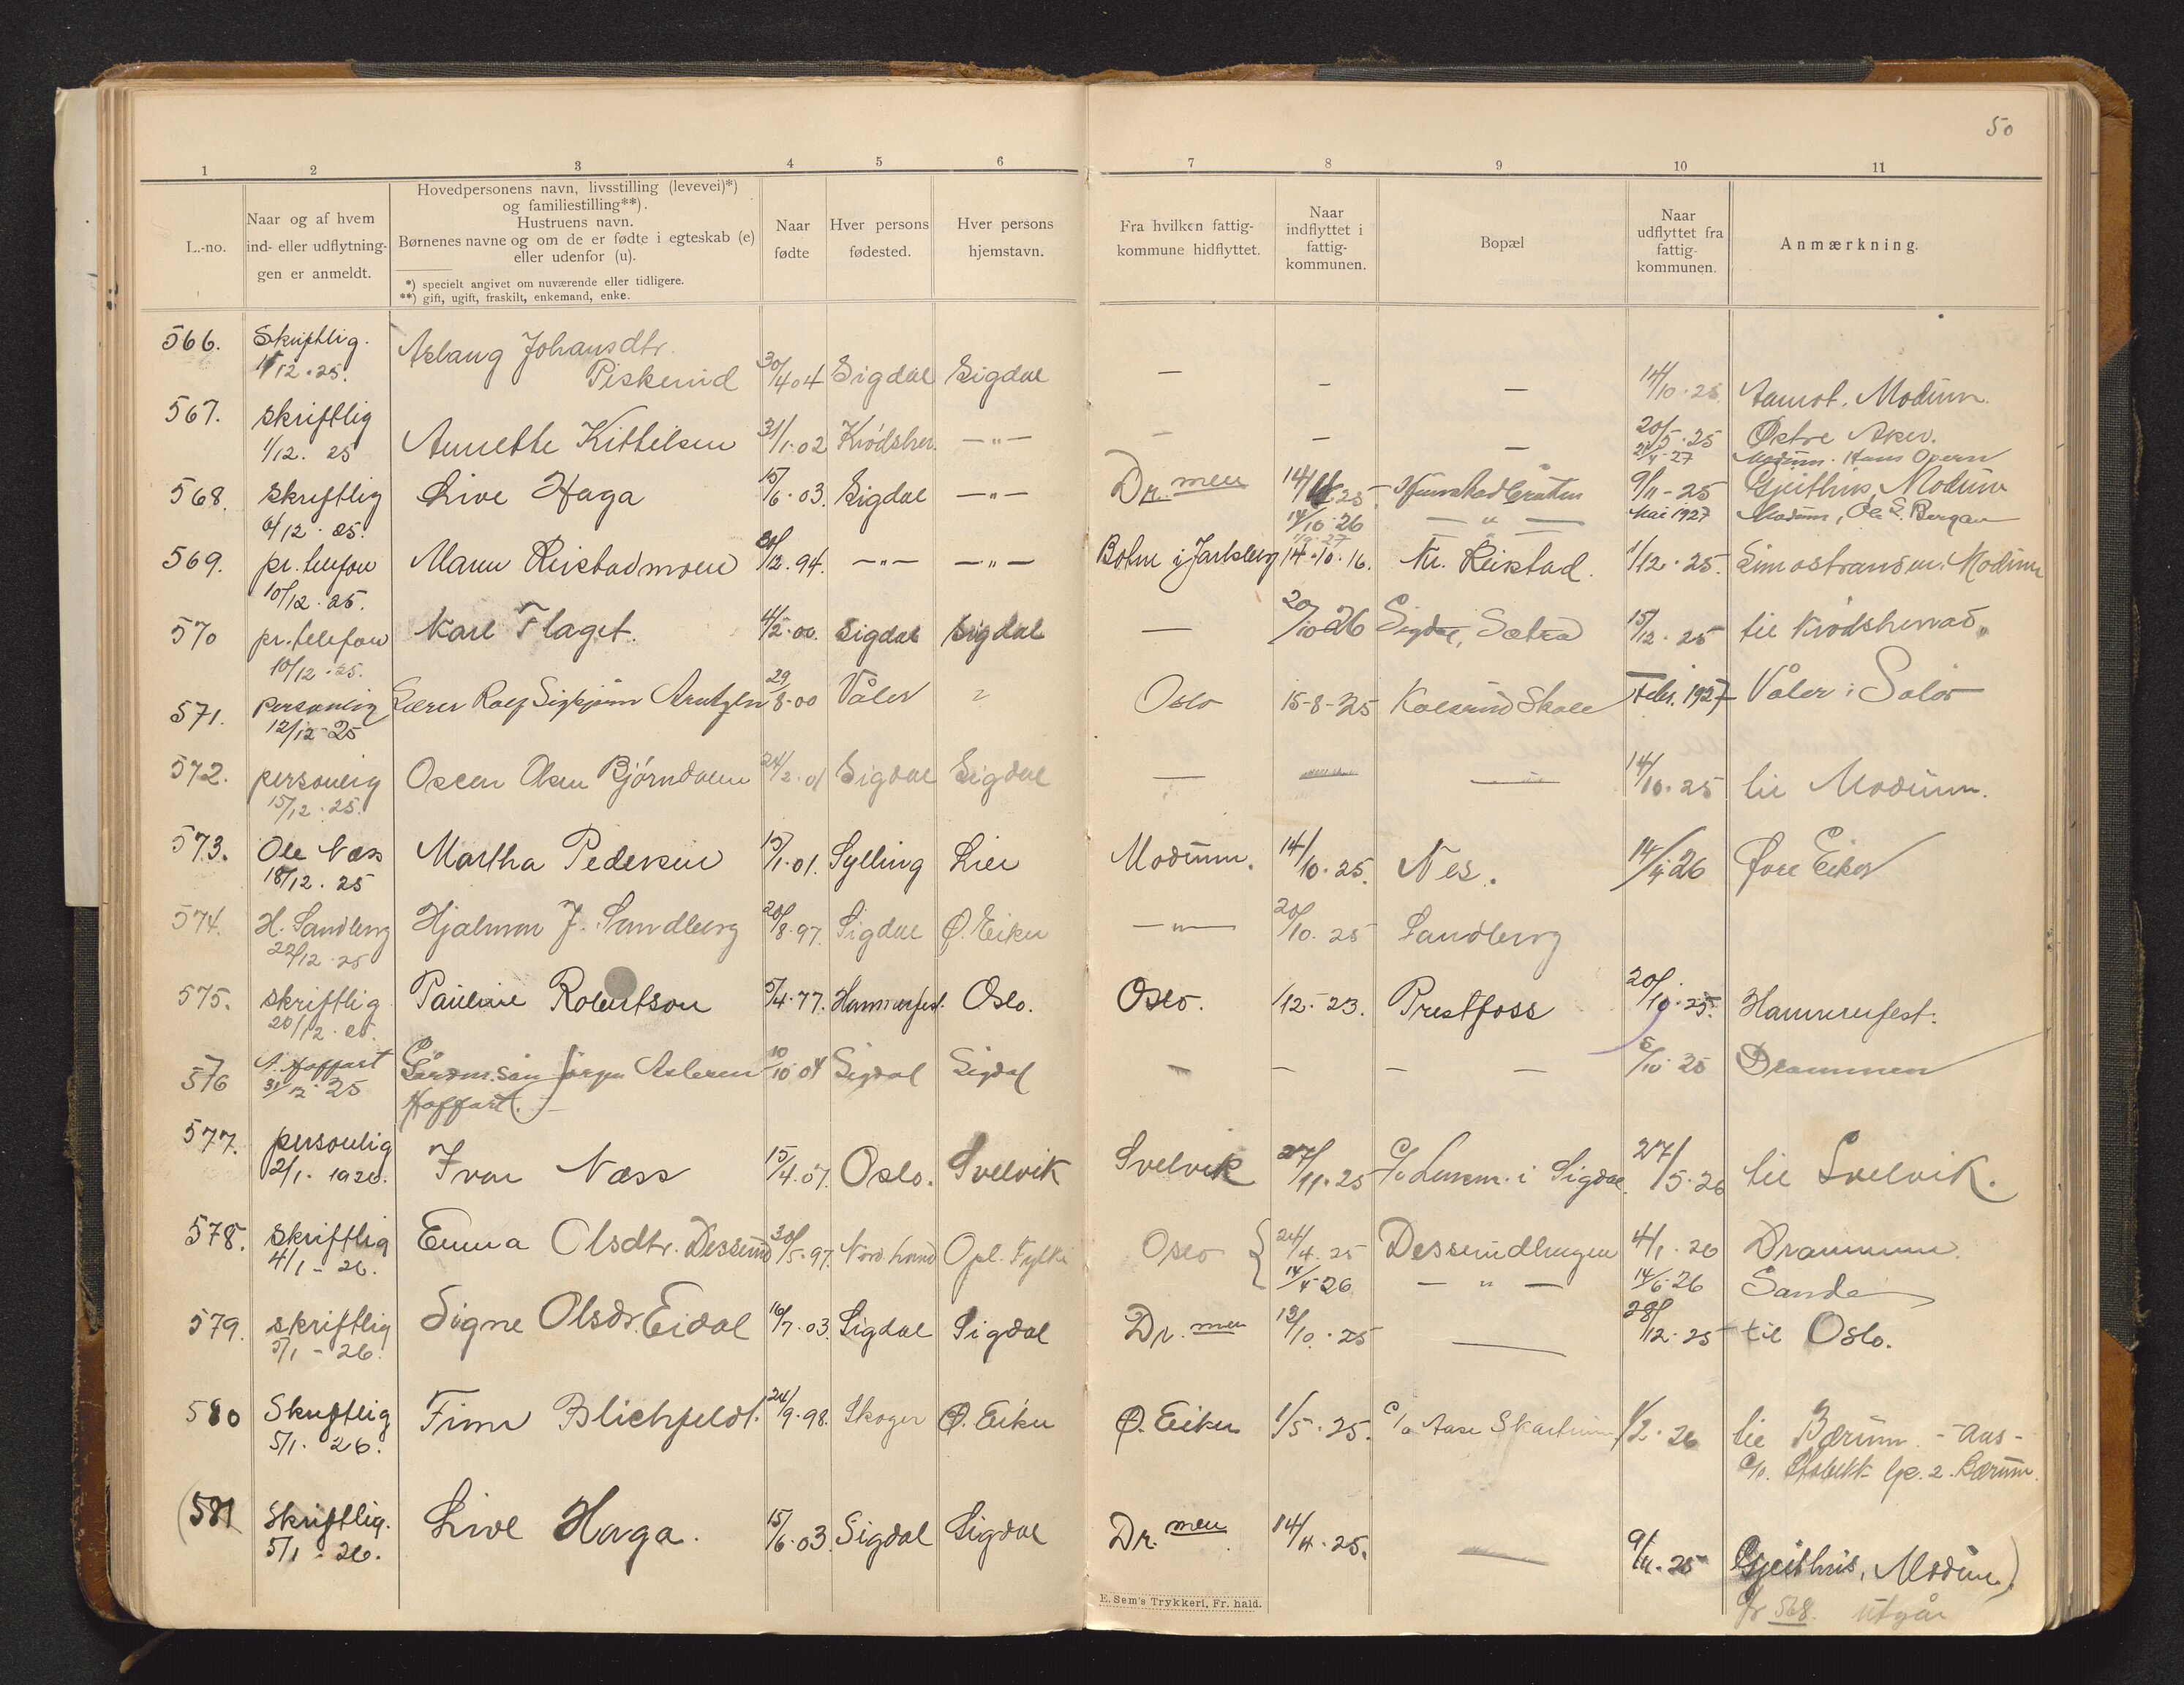 50
1 2 3 4 5 6 7 8 9 10 11
L.-no.
Naar og af hvem
ind- eller udflytnin-
gen er anmeldt.
Hovedpersonens navn, livsstilling (levevei)*)
og familiestilling**).
Hustruens navn.
Børnenes navne og om de er fødte i egteskab (e)
eller udenfor (u).
*) specielt angivet om nuværende eller tidligere.
**) gift, ugift, fraskilt, enkemand, enke.
Naar
fødte
Hver persons
fødested.
Hver persons
hjemstavn.
Fra hvilken fattig-
kommune hidflyttet.
Naar
indflyttet i
fattig-
kommunen.
Bopæl
Naar
udflyttet fra
fattig-
kommunen.
Anmærkning.
566. Skriftlig. Aslaug Johansdtr.
1/12.25. Piskerud 30/4 04 Sigdal Sigdal — — — 14/10.25 Aamot. Modum.
567. skriftlig 20/5.25 Østre Aker.
1/12. 25 Annette Kittelsen 31/1.02 Krødsher. —"— — — — 24/4 27 Modum. Hans Opern
568. skriftlig Live Haga 15/6.03. Sigdal —"— Dr.men 14/4 25 9/11-25 Gjeithus, Modum
6/12.25. 14/10.26 — " — Mai 1927 Modum, Ole S. Bergan
569. pr. telefon Maren Reistadmoen 12.94. —"— —"— Botne i Jarlsberg 14.10.16. Nr. Reistad. 1/12.25. Simostranden. Modum
10/12.25.
570 pr. telefon Karl Flaget. 4/2.00. Sigdal Sigdal — 20/10 26 Sigdal, Sætra 15/12.25 til Krødsherrad
10/12.25.
571. personlig Lærer Rolf Sigbjørn Arntzen 29/8-00 Våler " Oslo 15-8-25 Kolsrud Skole Febr. 1927 Våler i Solør
12/12-25
572. personlig Oscar Olsen Bjørndalen 24/2.01 Sigdal Sigdal — — 14/10.25 til Modum.
15/12.25.
573. Ole Næss Martha Pedersen 15/1.01. Sylling Lier Modum. 14/10.25. Nes. 14/4 26 Øvre Eiker
18/12. 25
574. H. Sandberg Hjalmar J. Sandberg 20/8.97. Sigdal Ø. Eiker —"— 20/10. 25 Sandberg
22/12 25
575. skriftlig Pauline Robertson 5/4.77. Hammerfest. Oslo. Oslo. 1/12-23. Prestfoss 20/10.25. Hammerfest.
20/12.25.
576 N. Hoffart Gårdm.søn Jørgen Aslesen 10/10 04 Sigdal Sigdal — — — — 5/10 25 Drammen
31/12.25 Hoffart.
577. personlig Ivar Næss 15/4.07. Oslo. Svelvik Svelvik 27/11.25 c/o Lensm. i Sigdal 27/5.26 til Svelvik.
2/1. 1926.
578. skriftlig Emma Olsdtr. Desserud 30/5.97. Nord. land Opl. Fylke Oslo 24/4 25 Desserudhaugen 4/1.26 Drammen.
4/1-26. 14/4 26 — " — 14/6 26 Sande
579. skriftlig Signe Olsdr. Eidal 16/7.03. Sigdal Sigdal Dr.men 12/10.25 — 28/12.25 til Oslo.
5/1-26.
580 Skriftlig Finn Blichfeldt. 24/9.98. Skoger Ø. Eiker Ø. Eiker 1/5.25. c/o Aase Skartum 1/2.26 til Bærum.
5/1.26. Bærum.
(581 Skriftlig. Live Haga. 15/6.03. Sigdal Sigdal Dr.men 14/4.25. — 9/11.25 Gjeithus, Modum)
5/1.26. jfr 568. utgår
E. Sem's Trykkeri, Fr. hald.